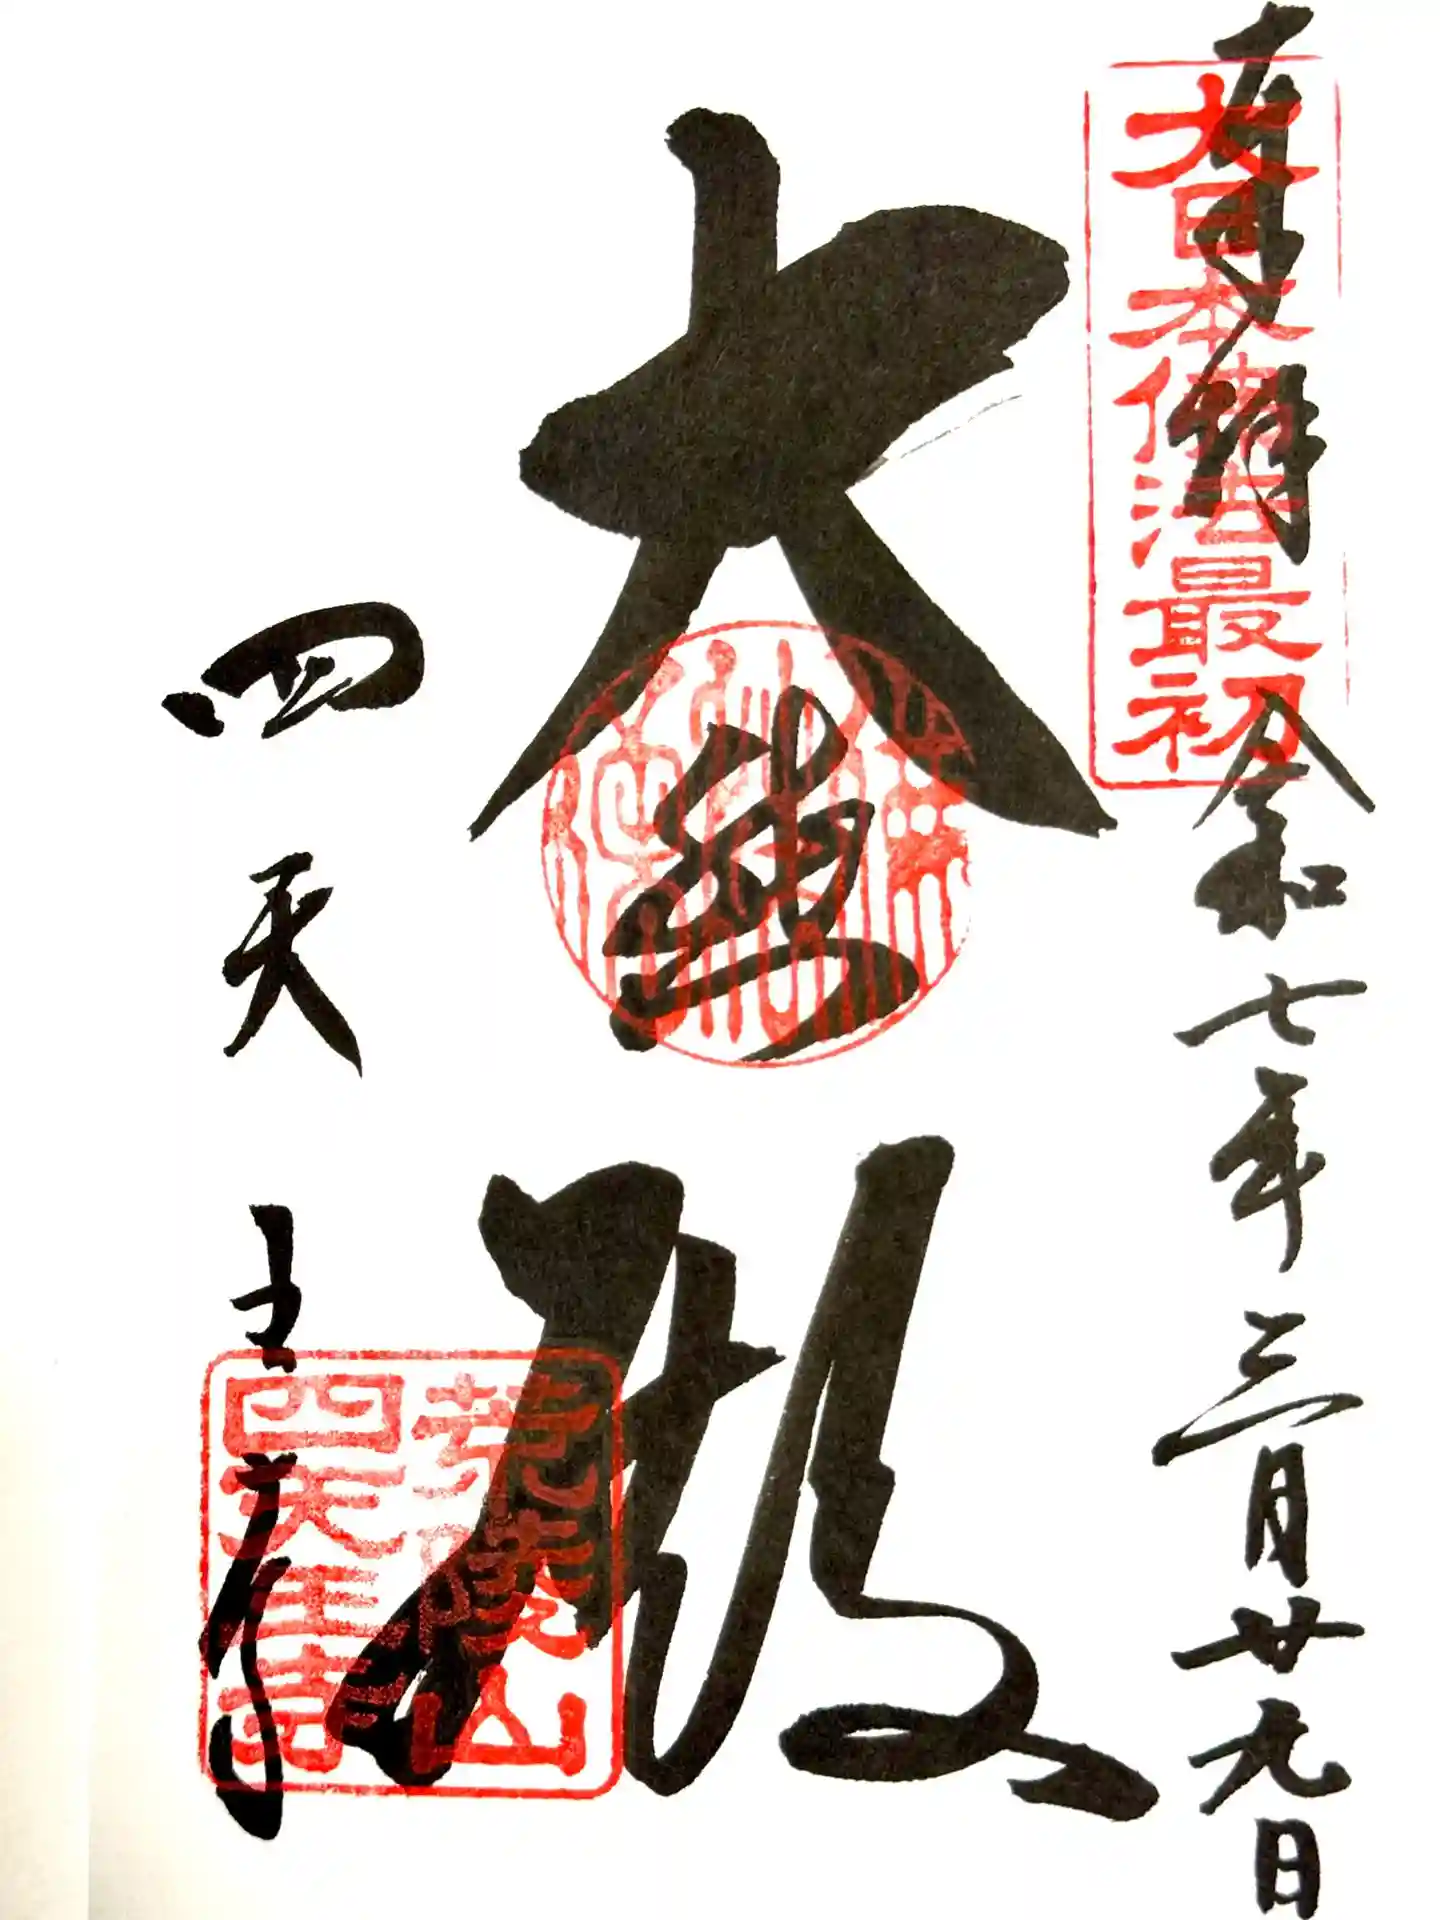 奉拝
大日本佛法最初
令和七年三月廿九日
大悲殿
四天王寺
荒陵山
四天王寺